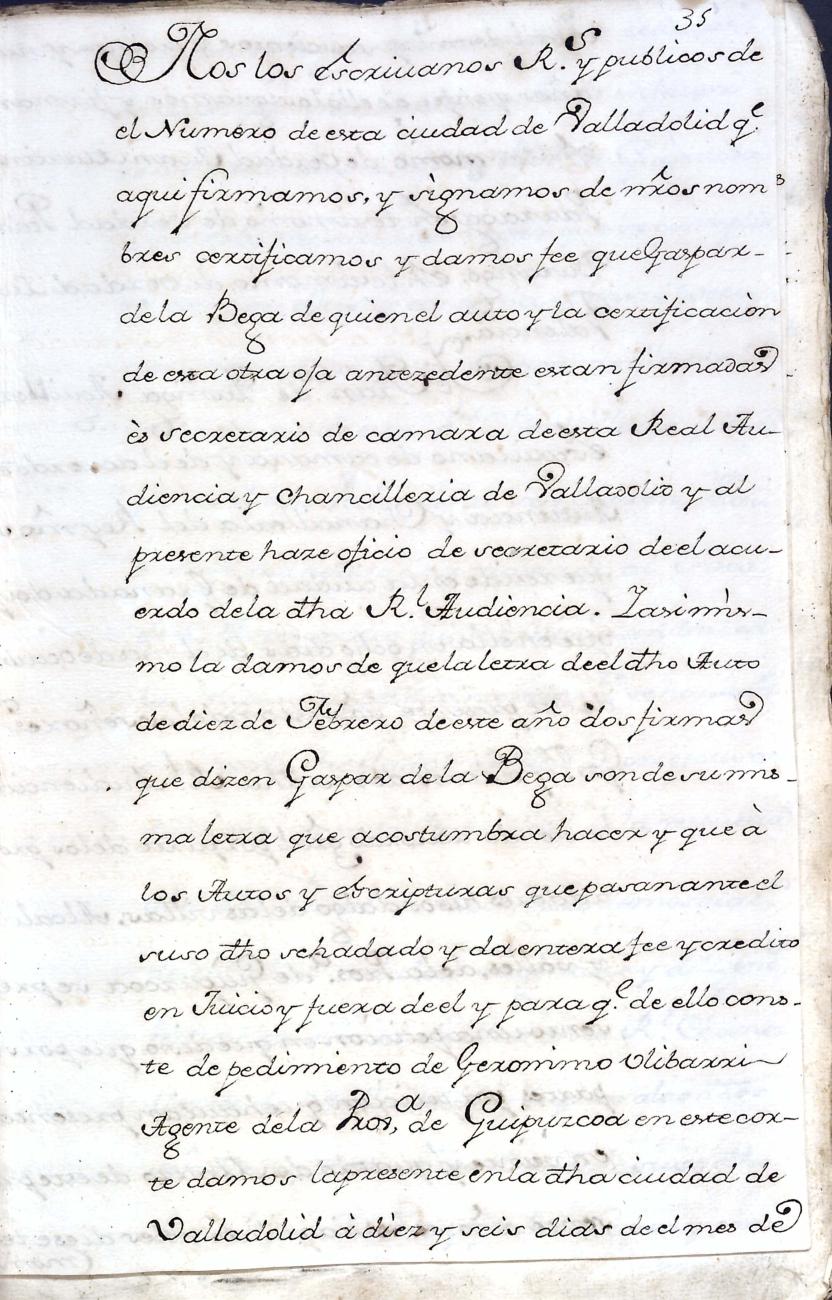 35
Nos los escriuanos R.s y publicos de
el Numero de esta ciudad de Valladolid q.e
aqui firmamos, y signamos de nr̃os nom
bres certificamos y damos fee que Gaspar-
de la Bega de quien el auto y la certificaciòn
de esta otra oja antezedente estan firmadas
ès secretario de camara de esta Real Au-
diencia y chancilleria de Valladolid y al
presente haze oficio de secretario de el acu-
erdo de la dħa R.l Audiencia. Y asimis-
mo la damos de que la letra de el dħo Auto
de diez de Febrero de este año dos firmas
que dizen Gaspar de la Bega son de su mis-
ma letra que acostumbra hacer y que à
los Autos y escripturas que pasan ante el
suso dħo se ha dado y da entera fee y credito
en Juicio y fuera de el y para q.e de ello cons-
te de pedimiento de Geronimo Vlibarri
Agente de la Pros,a de Guipuzcoa en este cor-
te damos la presente en la dħa ciudad de
Valladolid à diez y seis dias de el mes de